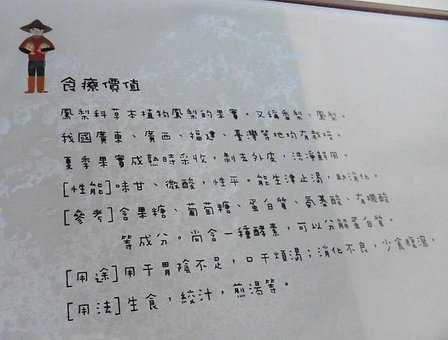 食療價值
鳳梨科草本植物鳳梨的果實，又稱香梨、鳳梨。
我國廣東、廣西、福建、臺灣等地均有栽培。
夏季果實成熟時采收，削去外皮，洗淨鮮用。
[性能]味甘、微酸，性平。能生津止渴，助消化，
[參考]含果糖、葡萄糖、蛋白質、氨基酸、有機酸
等成分。尚含一種酵素，可以分解蛋白質。
[用途]用于胃陰不足，口干煩渴；消化不良，少食腹瀉。
[用法]生食，絞汁，煎湯等。